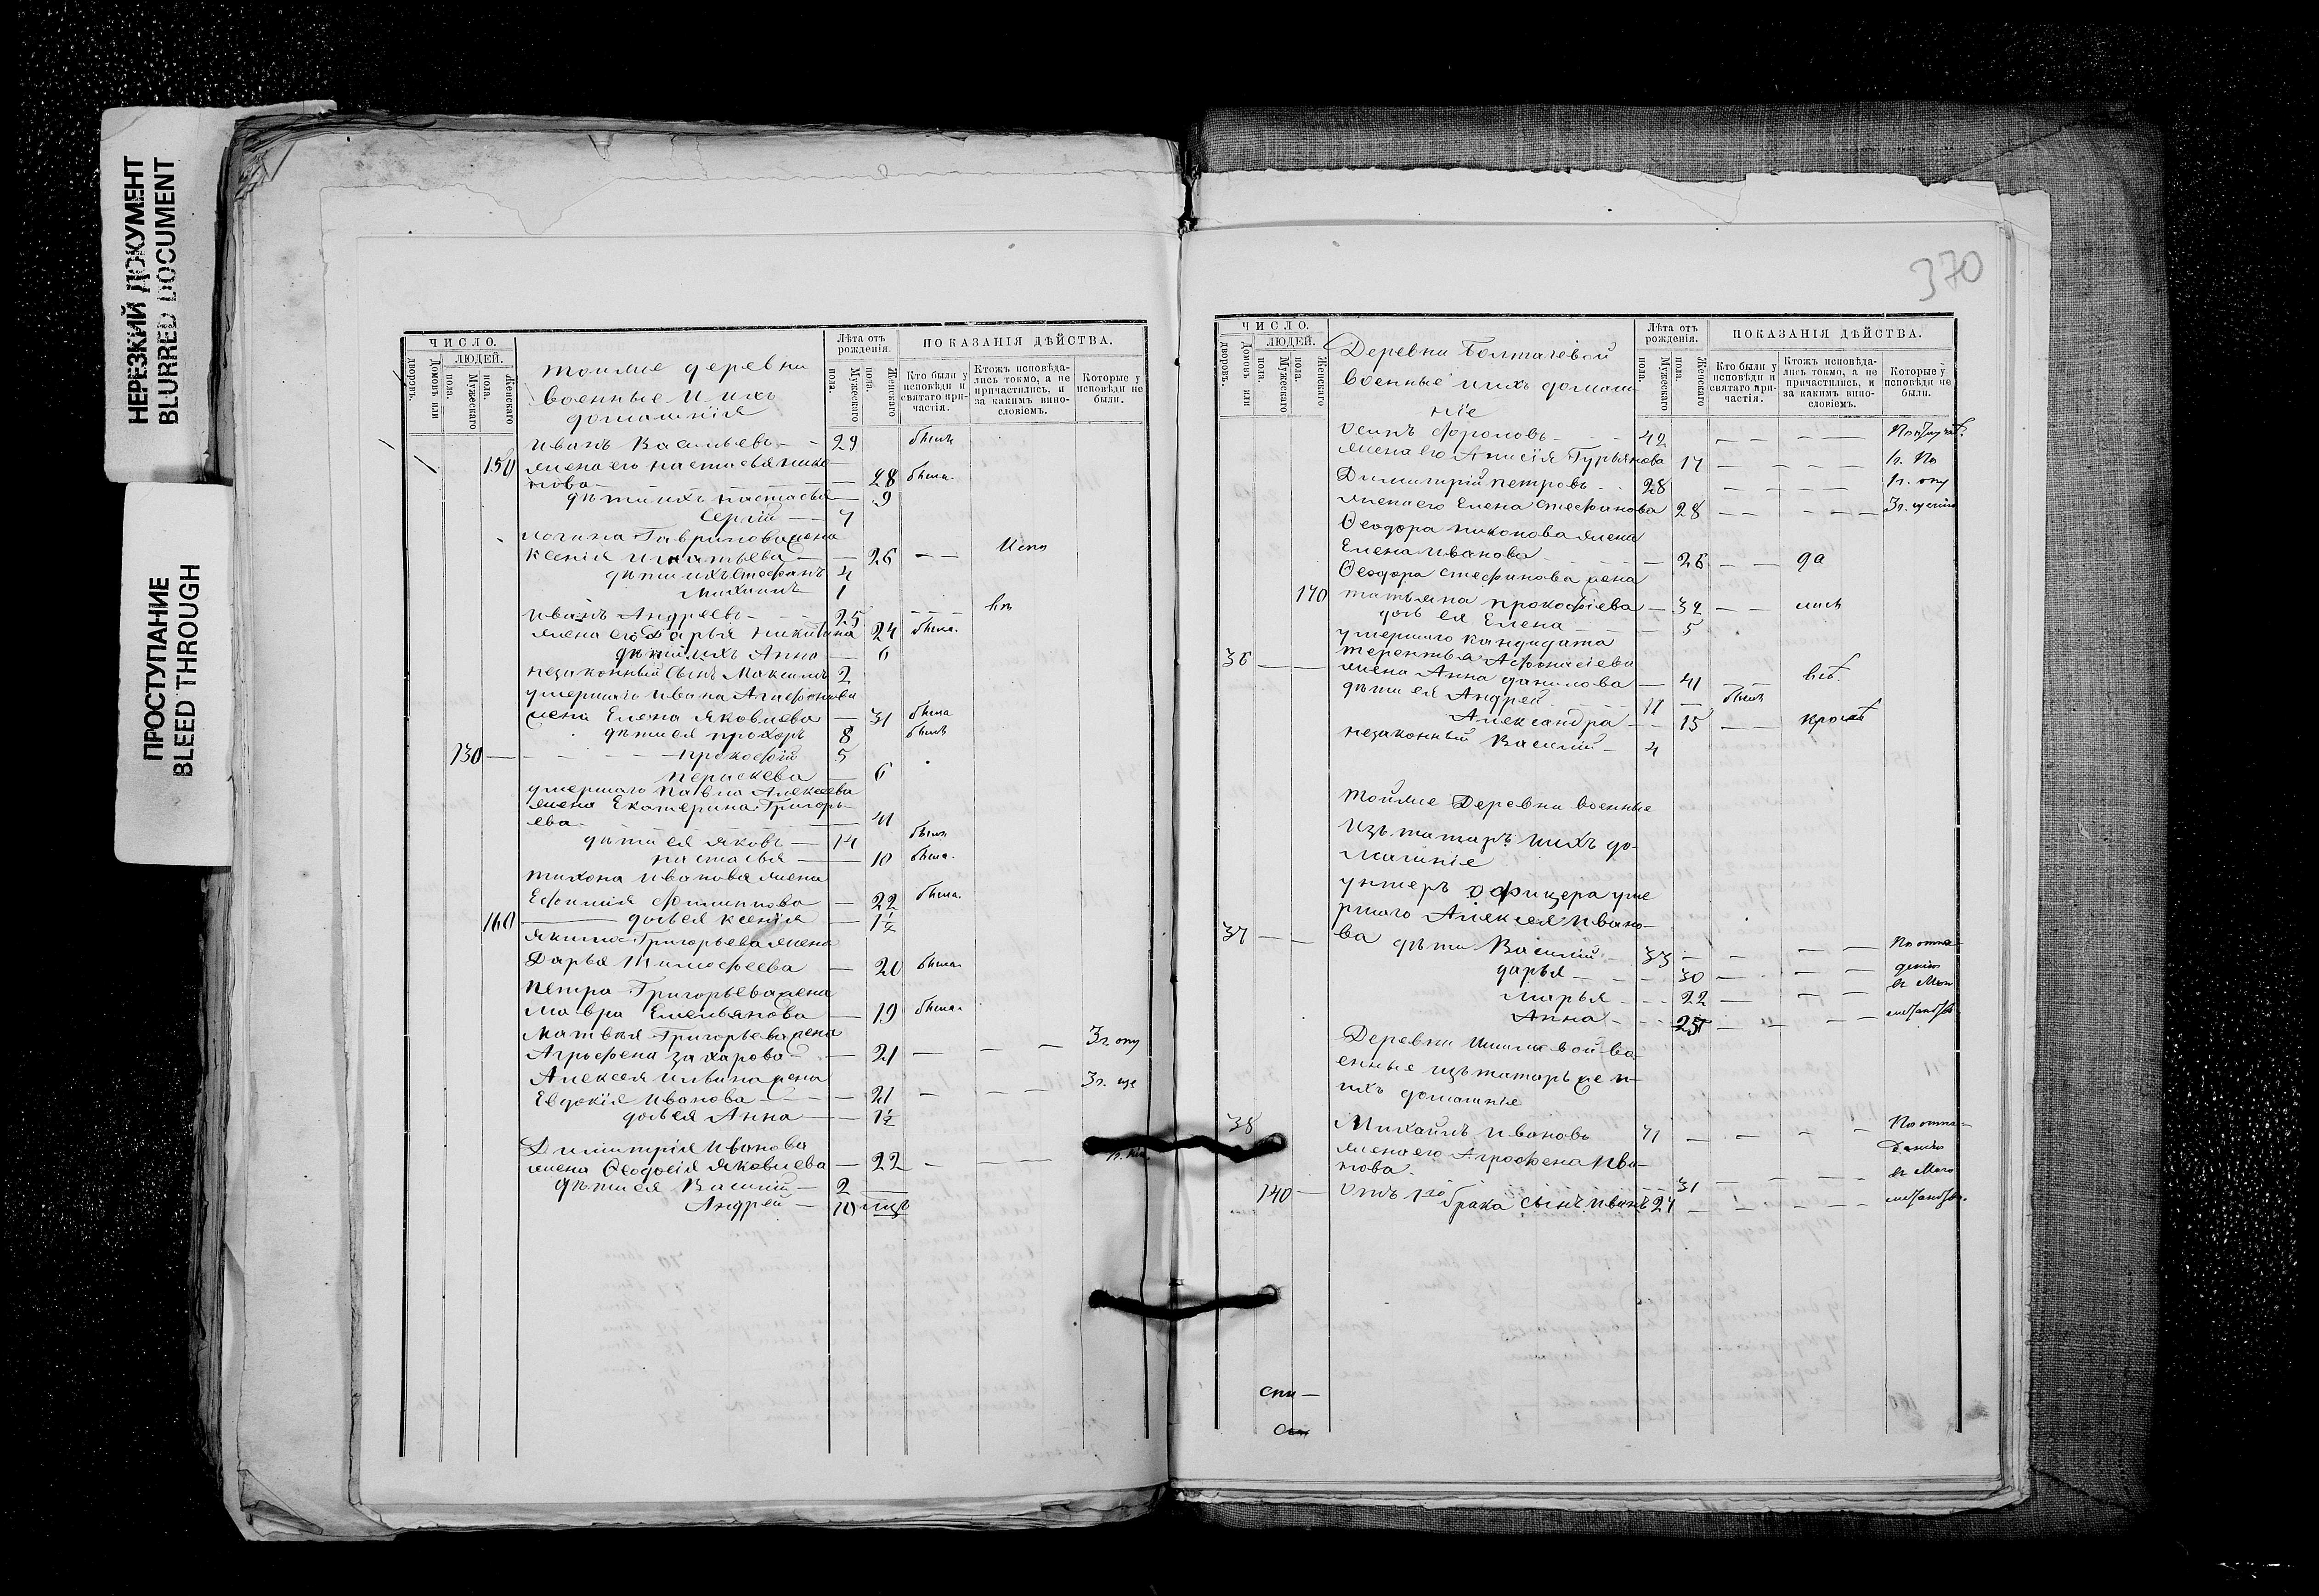 НЕРЕЗКИЙ ДОКУМЕНТ
BLURRED DOCUMENT
ПРОСТУПАНИЕ
BLEED THROUGH
ЧИСЛО.
ЛЮДЕЙ.
Домовъ или дворовъ.
Мужескаго пола.
Женскаго пола.
тойже деревни
военные и ихъ
домашнія
Лѣта отъ рожденія.
Мужескаго пола.
Женскаго пола.
ПОКАЗАНІЯ ДѢЙСТВА.
Кто были у исповѣди и святаго причастія.
Ктожъ исповѣдались токмо, а не причастились, и за какимъ винословіемъ.
Которые у исповѣди не были.
Иванъ Васильевъ 29 былъ
150 жена его Настасья Нико-
нова 28 была.
дѣти ихъ Настасья 9
Сергій 7
Логина Гаврилова жена
Ксенія Игнатьева 26 Испо
дѣти ихъ Стефанъ 4
Михаилъ 1
Иванъ Андреевъ 25
жена его Дарья Никитина 24 была.
дѣти ихъ Анна 6
незаконный сынъ Максимъ 2
умершаго Ивана Агафонова
жена Елена Яковлева 31 была
дѣти ея Прохоръ 8 былъ
130 Прокофій 5
Параскева 6
умершаго Павла Алексеева
жена Екатерина Григорь-
ева 41
дѣти ея Яковъ 14 былъ
Настасья 10 была.
Тихона Иванова жена
Ефимія Филиппова 22 была.
160 дочь ея Ксенія 1½
Якима Григорьева жена
Дарья Тимофеева 20 была.
Петра Григорьева жена
Мавра Емельянова 19 была.
Матвея Григорьева жена
Агрофена Захарова 21 За опу
Алексея Ильина жена
Евдокія Иванова 21 За ще
дочь ея Анна 1½
Димитрія Иванова
жена Ѳеодосія Яковлева 22
дѣти ея Василій 2
Андрей 10 мцѣ
370
ЧИСЛО.
ЛЮДЕЙ.
Домовъ или дворовъ.
Мужескаго пола.
Женскаго пола.
Деревни Болтачевой
военные и ихъ домаш-
ніе
Лѣта отъ рожденія.
Мужескаго пола.
Женскаго пола.
ПОКАЗАНІЯ ДѢЙСТВА.
Кто были у исповѣди и святаго причастія.
Ктожъ исповѣдались токмо, а не причастились, и за какимъ винословіемъ.
Которые у исповѣди не были.
Осипъ Фроловъ 42
жена его Анисія Гурьянова 17
Димитрій Петровъ 28
жена его Елена Стефанова 28 За щеніе
Ѳеодора Никонова жена
Елена Иванова 26 да
Ѳеодора Стефанова жена
170 Татьяна Прокофіева 32 лись
дочь ея Елена 5
умершаго кандидата
36 Терентья Афонасіева
жена Анна Данилова 41
дѣти ея Андрей 11 былъ
Александра 15 кромѣ
незаконный Василій 4
Тойже Деревни военные
изъ татаръ и ихъ до-
машніе
унтеръ офицера уме
ршаго Алексея Ивано-
37 ва дѣти Василій 33 По отпа-
дарья 30 деніи
Марья 22 въ Маго
Анна 25 метанство.
Деревни Ишлевой во-
енные изъ татаръ же и
ихъ домашніе
38 Михаилъ Ивановъ 71 По отпа-
жена его Агрофена Ива- деніи
нова. 31 въ Маго
140 Отъ 1го брака сынъ Иванъ 21 метанство.